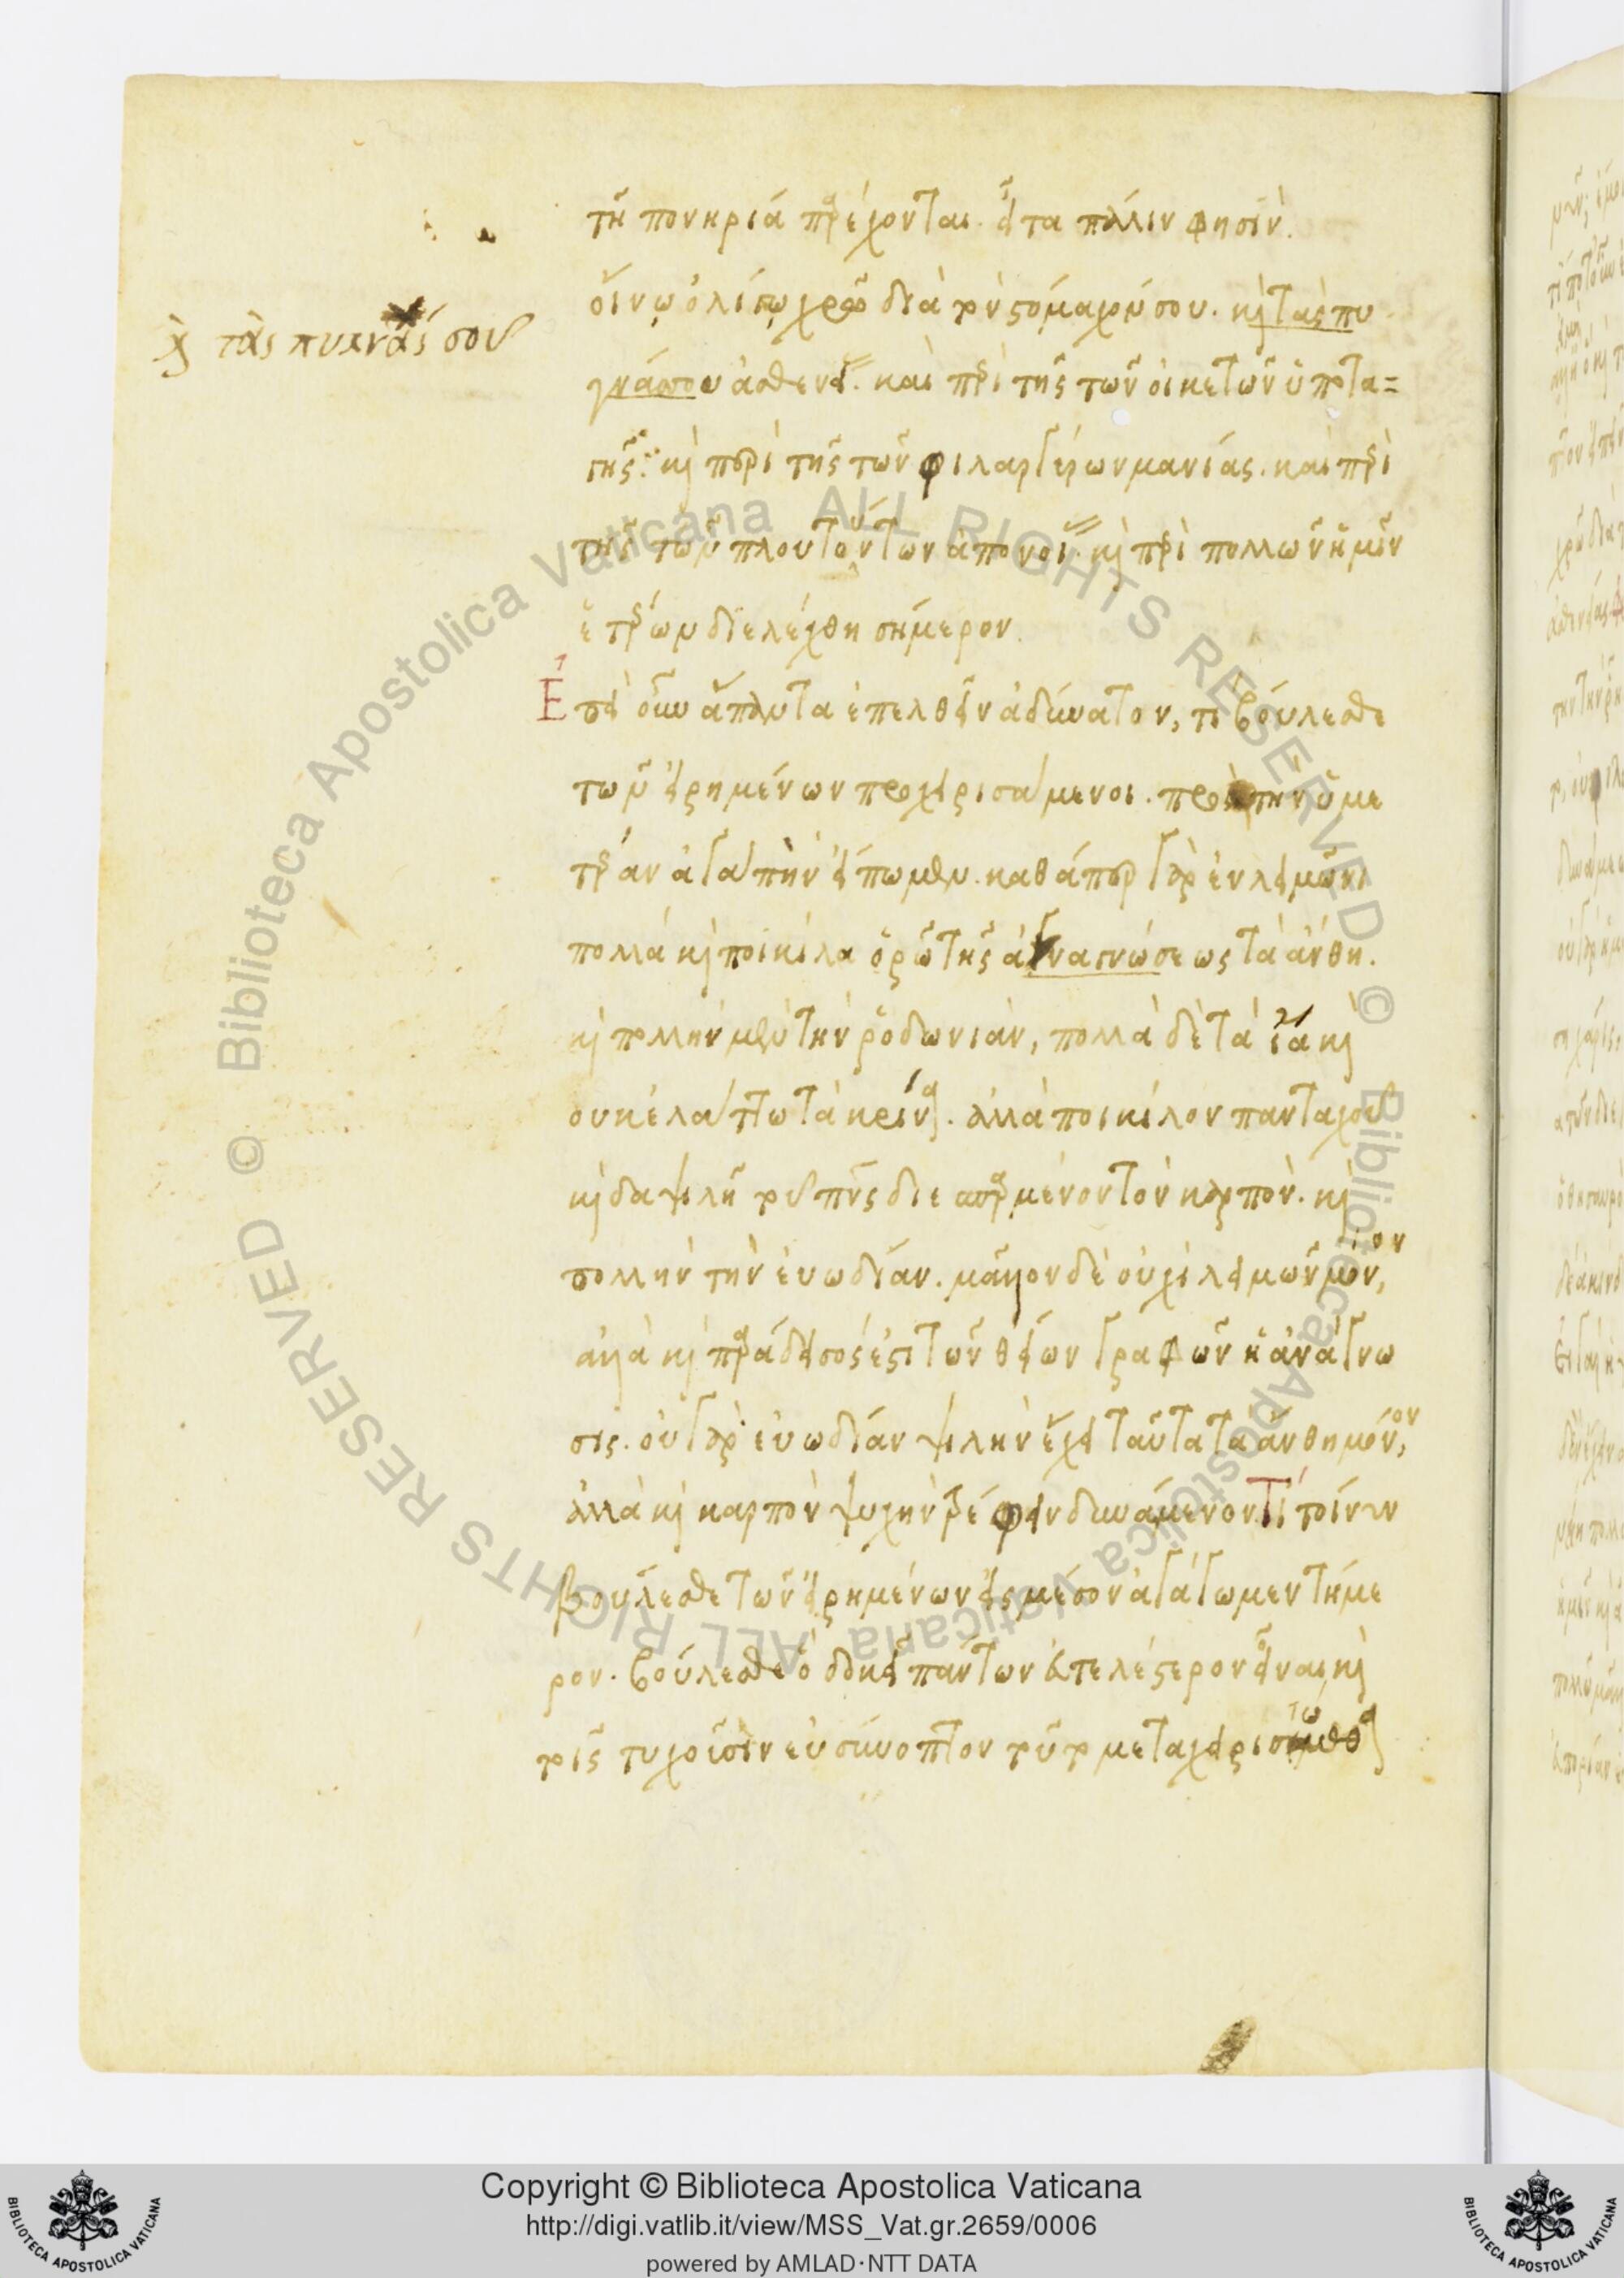 τῆ πονηριά παρέχονται. εἶτα πάλιν φησίν.
οἴνῳ ὀλίγῳ χρῶ διὰ τὸν στόμαχόν σου. καὶ τὰς πυ
κνάς σου ἀσθενείας. καὶ περὶ τῆς τῶν οἰκετῶν ὑποτα=
γῆς: καὶ περὶ τῆς τῶν φιλαργύρων μανίας. καὶ περὶ
τῆς τῶν πλουτούντων ἀπονοίας. καὶ περὶ πολλῶν ἡμῖν
ἑτέρων διελέχθη σήμερον.
Ἐπεὶ οὖν ἅπαντα ἐπελθεῖν ἀδύνατον, τί βούλεσθε
τῶν εἰρημένων προχειρισάμενοι. πρὸς τὴν ὑμε
τέραν ἀγάπην εἴπωμεν. καθάπερ γὰρ ἐν λειμῶνι
πολλά καὶ ποικίλα ὁρῶ τῆς ἀναγνώσεως τὰ ἄνθη.
καὶ πολλὴν μὲν τὴν ῥοδωνιὰν, πολλὰ δὲ τὰ ἴα καὶ
ουκ ἐλάττω τὰ κρίνα. ἀλλὰ ποικίλον πανταχοῦ
καὶ δαψιλῆ τοῦ πνς διεσπαρμένον τὸν καρπὸν. καὶ
πολλὴν τὴν ἐυωδίαν. μᾶλλον δὲ οὐχὶ λειμῶν μόνον,
ἀλλὰ καὶ παράδεισός ἐστι τῶν θείων γραφῶν ἡ ἀνάγνω
σις. οὐ γὰρ ἐυωδίαν ψιλὴν ἔχει ταῦτα τὰ ἄνθη μόνον,
ἀλλὰ καὶ καρπὸν ψυχὴν τρέφειν δυνάμενον. Τί τοίνυν
βούλεσθε τῶν εἰρημένων εἰς μέσον ἀγάγωμεν τήμε
ρον. βούλεσθε ὃ δοκεῖ πάντων ἐυτελέστερον εἶναι καὶ
τοῖς τυχοῦσιν ευσύνοπτον τοῦτο μεταχειρισώμεθα
καὶ τὰς πυκνάς σου
Copyright © Biblioteca Apostolica Vaticana
http://digi.vatlib.it/view/MSS_Vat.gr.2659/0006
powered by AMLAD·NTT DATA
BIBLIOTECA APOSTOLICA VATICANA
BIBLIOTECA APOSTOLICA VATICANA
© Biblioteca Apostolica Vaticana ALL RIGHTS RESERVED
© Biblioteca Apostolica Vaticana ALL RIGHTS RESERVED